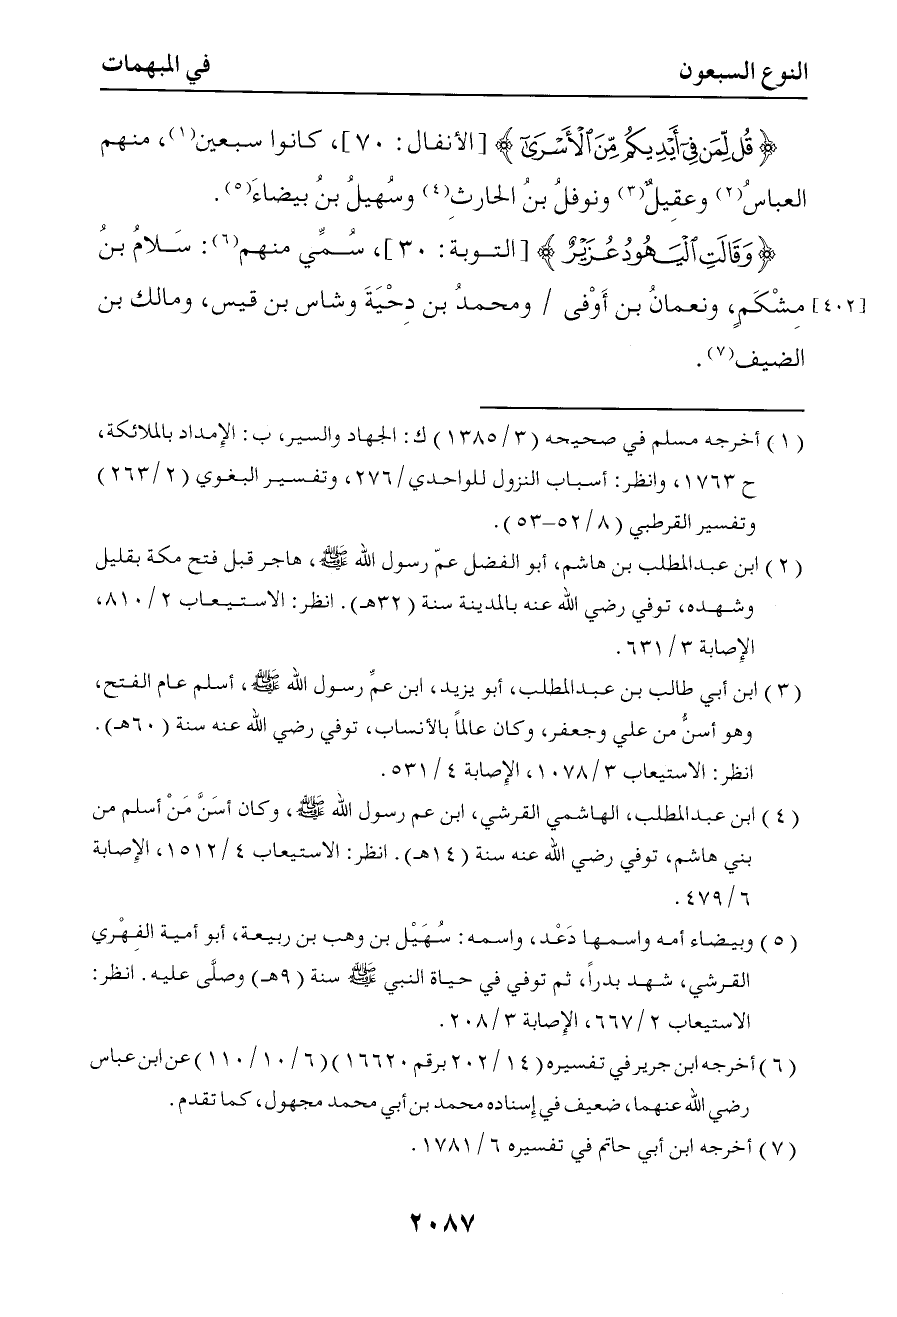 النوع السبعون في المبهمات
﴿قُل لِّمَن فِىٓ أَيْدِيكُم مِّنَ ٱلْأَسْرَىٰٓ﴾ [الأنفال: ٧٠]، كانوا سبعين(١)، منهم
العباسُ(٢) وعقيلٌ(٣) ونوفلُ بنُ الحارث(٤) وسُهيلُ بنُ بيضاءَ(٥).
﴿وَقَالَتِ ٱلْيَهُودُ عُزَيْرٌ﴾ [التوبة: ٣٠]، سُمِّي منهم(٦): سَلامُ بنُ
[٤٠٢] مِشْكَمٍ، ونعمانُ بن أَوْفى / ومحمدُ بن دِحْيَةَ وشاس بن قيس، ومالك بن
الضيف(٧).
(١) أخرجه مسلم في صحيحه (٣/ ١٣٨٥) ك: الجهاد والسير، ب: الإمداد بالملائكة،
ح ١٧٦٣، وانظر: أسباب النزول للواحدي/ ٢٧٦، وتفسير البغوي (٢/ ٢٦٣)
وتفسير القرطبي (٨/ ٥٢-٥٣).
(٢) ابن عبدالمطلب بن هاشم، أبو الفضل عمّ رسول الله ﷺ، هاجر قبل فتح مكة بقليل
وشهده، توفي رضي الله عنه بالمدينة سنة (٣٢هـ). انظر: الاستيعاب ٢/ ٨١٠،
الإصابة ٣/ ٦٣١.
(٣) ابن أبي طالب بن عبدالمطلب، أبو يزيد، ابن عمِّ رسول الله ﷺ، أسلم عام الفتح،
وهو أسنُّ من علي وجعفر، وكان عالماً بالأنساب، توفي رضي الله عنه سنة (٦٠هـ).
انظر: الاستيعاب ٣/ ١٠٧٨، الإصابة ٤/ ٥٣١.
(٤) ابن عبدالمطلب، الهاشمي القرشي، ابن عم رسول الله ﷺ، وكان أسَنَّ مَنْ أسلم من
بني هاشم، توفي رضي الله عنه سنة (١٤هـ). انظر: الاستيعاب ٤/ ١٥١٢، الإصابة
٦/ ٤٧٩.
(٥) وبيضاء أمه واسمها دَعْد، واسمه: سُهَيْل بن وهب بن ربيعة، أبو أمية الفِهْري
القرشي، شهد بدراً، ثم توفي في حياة النبي ﷺ سنة (٩هـ) وصلَّى عليه. انظر:
الاستيعاب ٢/ ٦٦٧، الإصابة ٣/ ٢٠٨.
(٦) أخرجه ابن جرير في تفسيره (١٤/ ٢٠٢ برقم ١٦٦٢٠) (٦/ ١٠/ ١١٠) عن ابن عباس
رضي الله عنهما، ضعيف في إسناده محمد بن أبي محمد مجهول، كما تقدم.
(٧) أخرجه ابن أبي حاتم في تفسيره ٦/ ١٧٨١.
٢٠٨٧